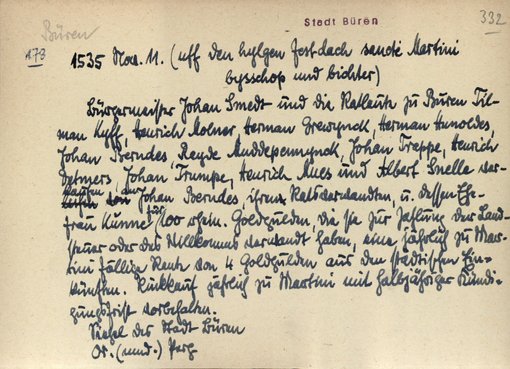 Stadt Büren
332
Büren
173
1535 Nov. 11. (uff den hylgen festdach sancte Martini
bysschop und bichter)
Bürgermeister Johan Smedt und die Ratleute zu Büren Til-
man Kyff, Henrich Molner, Herman Grewynck, Herman Hunoldes,
Johan Berndes, Reyde Muddepennynck, Johan Treppe, Henrich
Detmers, Johan Trumpe, Henrich Mues und Albert Snelle ver-
kaufen an Johan Berndes, ihren Ratsverwandten, u. dessen Ehe-
frau Kunne für 100 rhein. Goldgulden, die sie zur Zahlung der Land-
steuer oder des Willkomms verwandt haben, eine jährlich zu Mar-
tini fällige Rente von 4 Goldgulden aus den städtischen Ein-
künften. Rückkauf jährlich zu Martini mit halbjähriger Kündi-
gungsfrist vorbehalten.
Siegel der Stadt Büren
Or. (mnd.) Perg